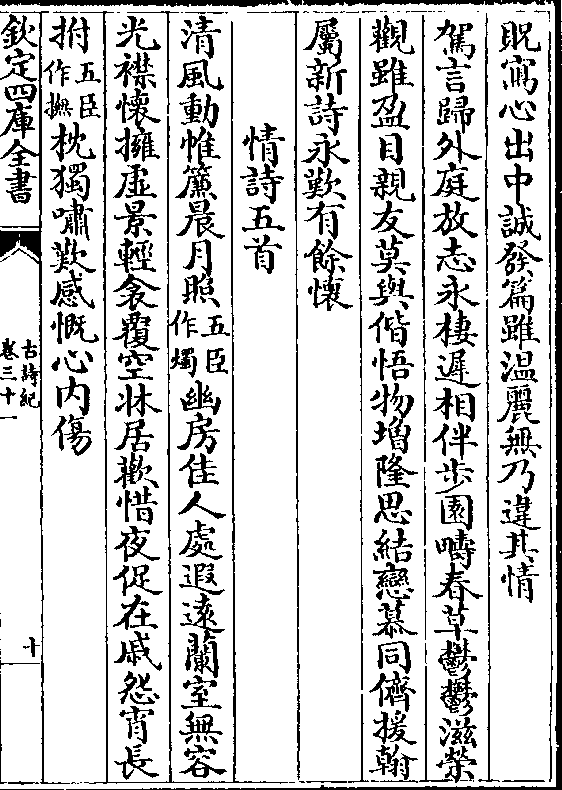 貺寫心出中誠發篇雖温麗無乃違其情
駕言歸外庭放志永棲遲相伴步園疇春草鬱鬱滋榮
觀雖盈目親友莫與偕悟物増隆思結戀慕同儕援翰
屬新詩永歎有餘懷
情詩五首
清風動帷簾晨月照五臣作燭幽房佳人處遐遠蘭室無容
光襟懷擁虛景輕衾覆空牀居歡惜夜促在戚怨宵長
拊五臣作撫枕獨嘯歎感慨心内傷
欽定四庫全書
古詩紀
卷三十一
十